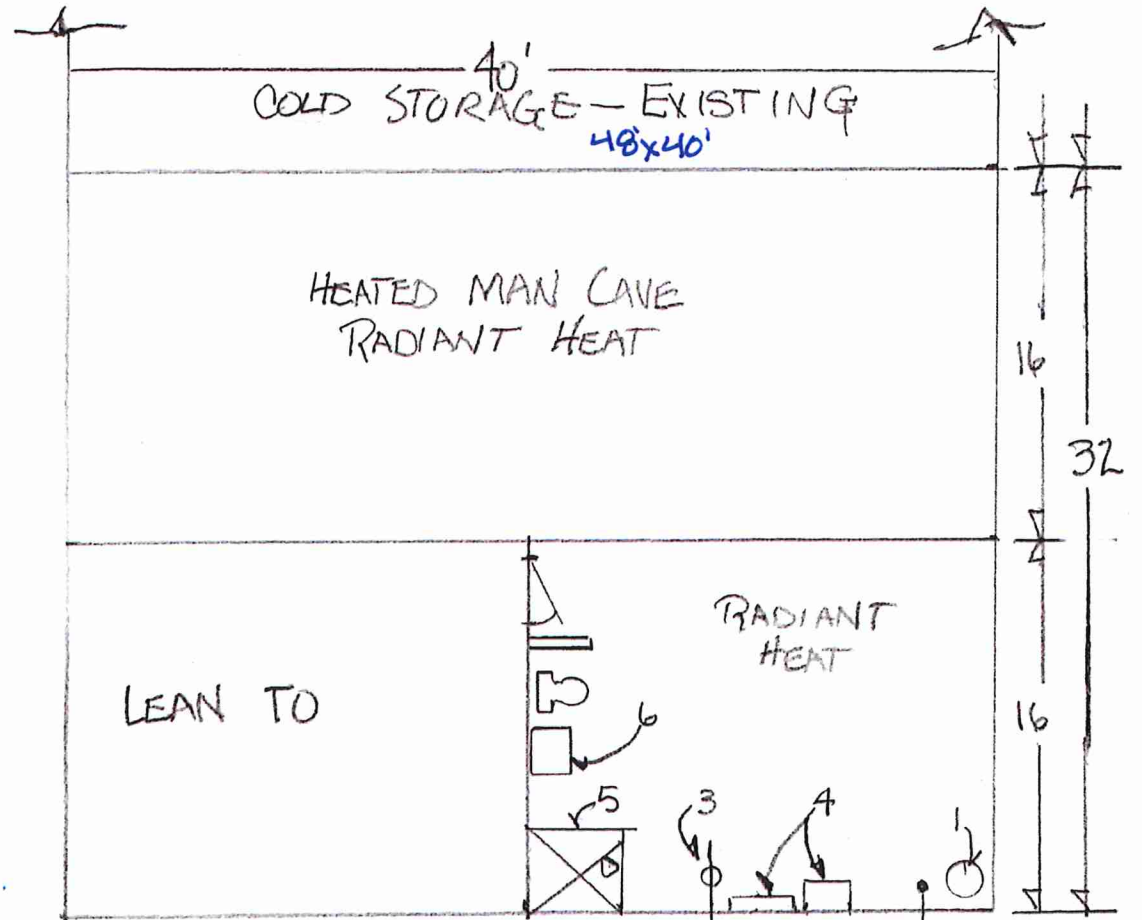 40'
COLD STORAGE - EXISTING
48'x40'
HEATED MAN CAVE
RADIANT HEAT
16
32
RADIANT
HEAT
LEAN TO
16
6
5
3
4
1